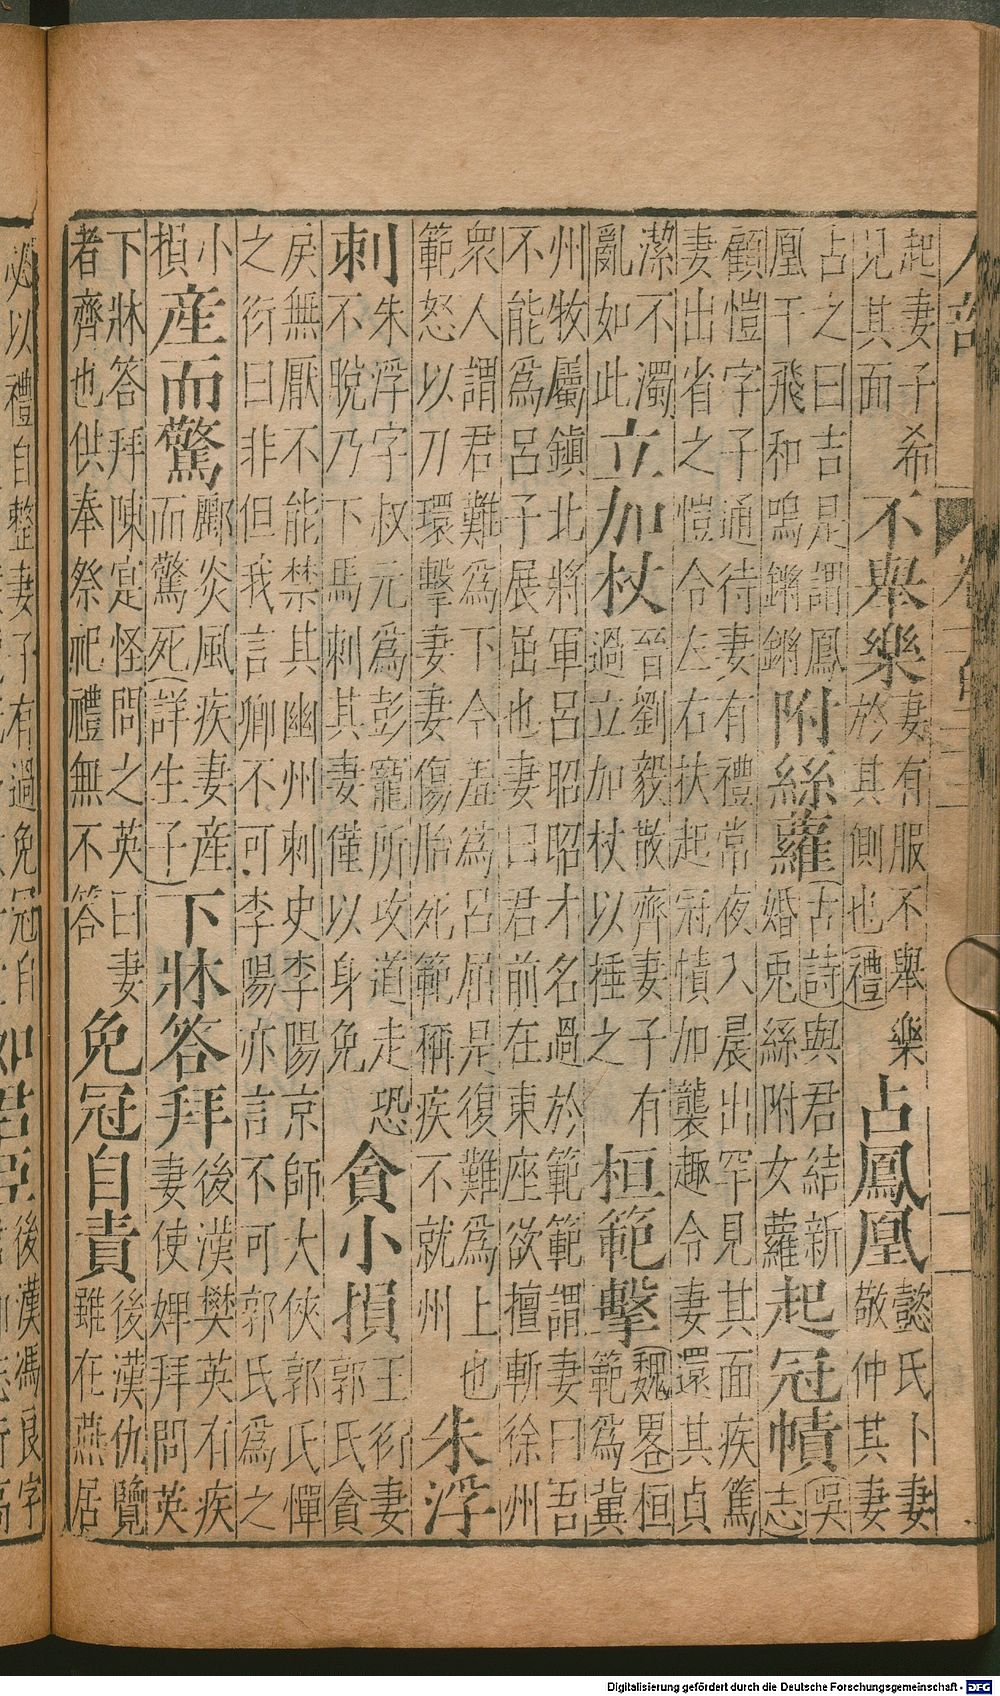 人部
起妻子希
見其面
不舉樂
妻有服不舉樂
於其側也(禮)
占鳳凰
懿氏卜妻
敬仲其妻
占之曰吉是謂鳳
凰于飛和鳴鏘鏘
附絲蘿
(古詩)與君結新
婚兎絲附女蘿
起冠幘
(吳
志)
顧愷字子通待妻有禮常夜入晨出罕見其面疾篤
妻出省之愷令左右扶起冠幘加襲趣令妻還其貞
潔不濁
亂如此
立加杖
晉劉毅散齊妻子有
過立加杖以捶之
桓範擊
(魏畧)桓
範爲冀
州牧屬鎮北將軍呂昭昭才名過於範範謂妻曰吾
不能爲呂子展屈也妻曰君前在東座欲擅斬徐州
衆人謂君難爲下今羞爲呂屈是復難爲上也
範怒以刀環擊妻妻傷胎死範稱疾不就州
朱浮
刺
朱浮字叔元爲彭寵所攻道走恐
不脫乃下馬刺其妻僅以身免
貪小損
王衍妻
郭氏貪
戾無厭不能禁其幽州刺史李陽京師大俠郭氏憚
之衍曰非但我言卿不可李陽亦言不可郭氏爲之
小
損
産而驚
酈炎風疾妻産
而驚死(詳生子)
下牀答拜
後漢樊英有疾
妻使婢拜問英
下牀答拜陳寔怪問之英曰妻
者齊也供奉祭祀禮無不答
免冠自責
後漢仇覽
雖在燕居
必以禮自整妻子有過免冠自
如君臣
後漢馮良字
Digitalisierung gefördert durch die Deutsche Forschungsgemeinschaft - DFG